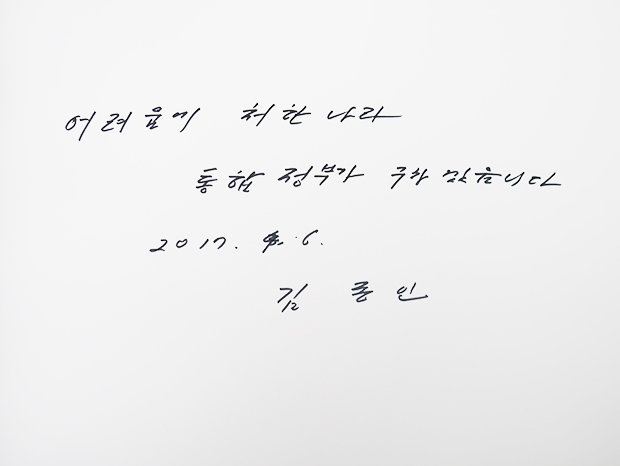 어려움에 처한 나라
통합정부가 구하겠습니다
2017. 4. 6.
김종인